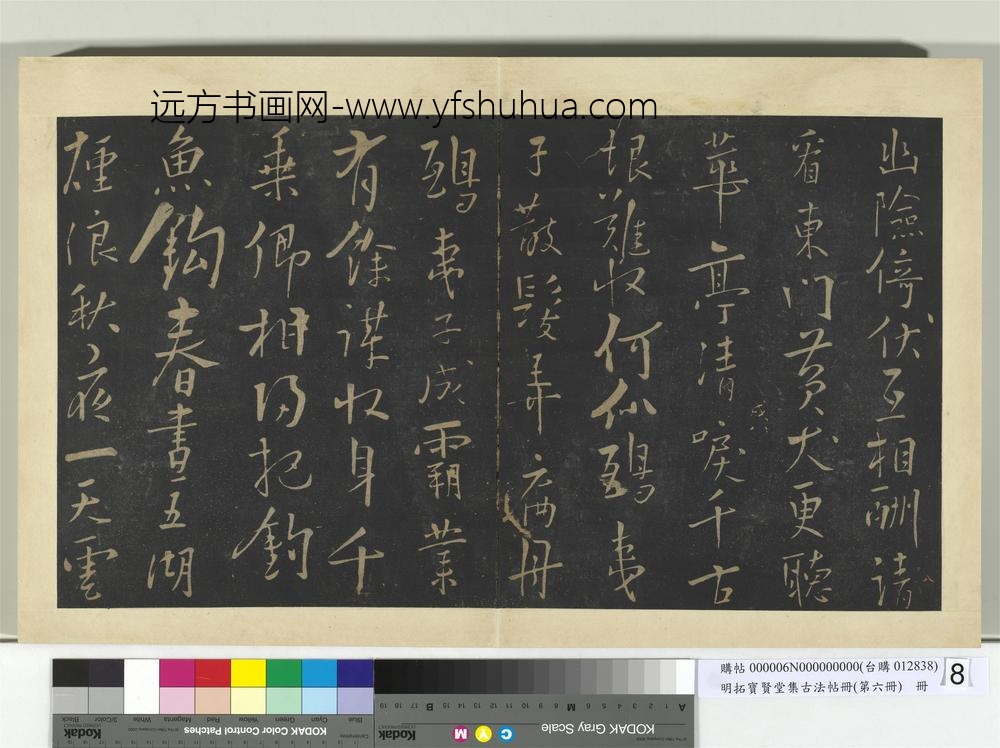 远方书画网-www.yfshuhua.com
幽險倚伏互相酬請
看東門黃犬更聽
華亭清唳千古
恨難收何似鴟夷
子散髮弄扁舟
鴟夷子成霸業
有餘謀收身千
乘卿相歸把釣
魚鈎春晝五湖
煙浪秋夜一天雲
八
購帖 000006N000000000(台購 012838)
明拓寶賢堂集古法帖冊(第六冊) 冊
8
KODAK Color Control Patches
Kodak
Blue
Cyan
Green
Yellow
Red
Magenta
White
3/Color
Black
KODAK Gray Scale
Kodak
C
Y
M
A 1 2 3 4 5 6 M 8 9 10 11 12 13 14 15 B 17 18 19